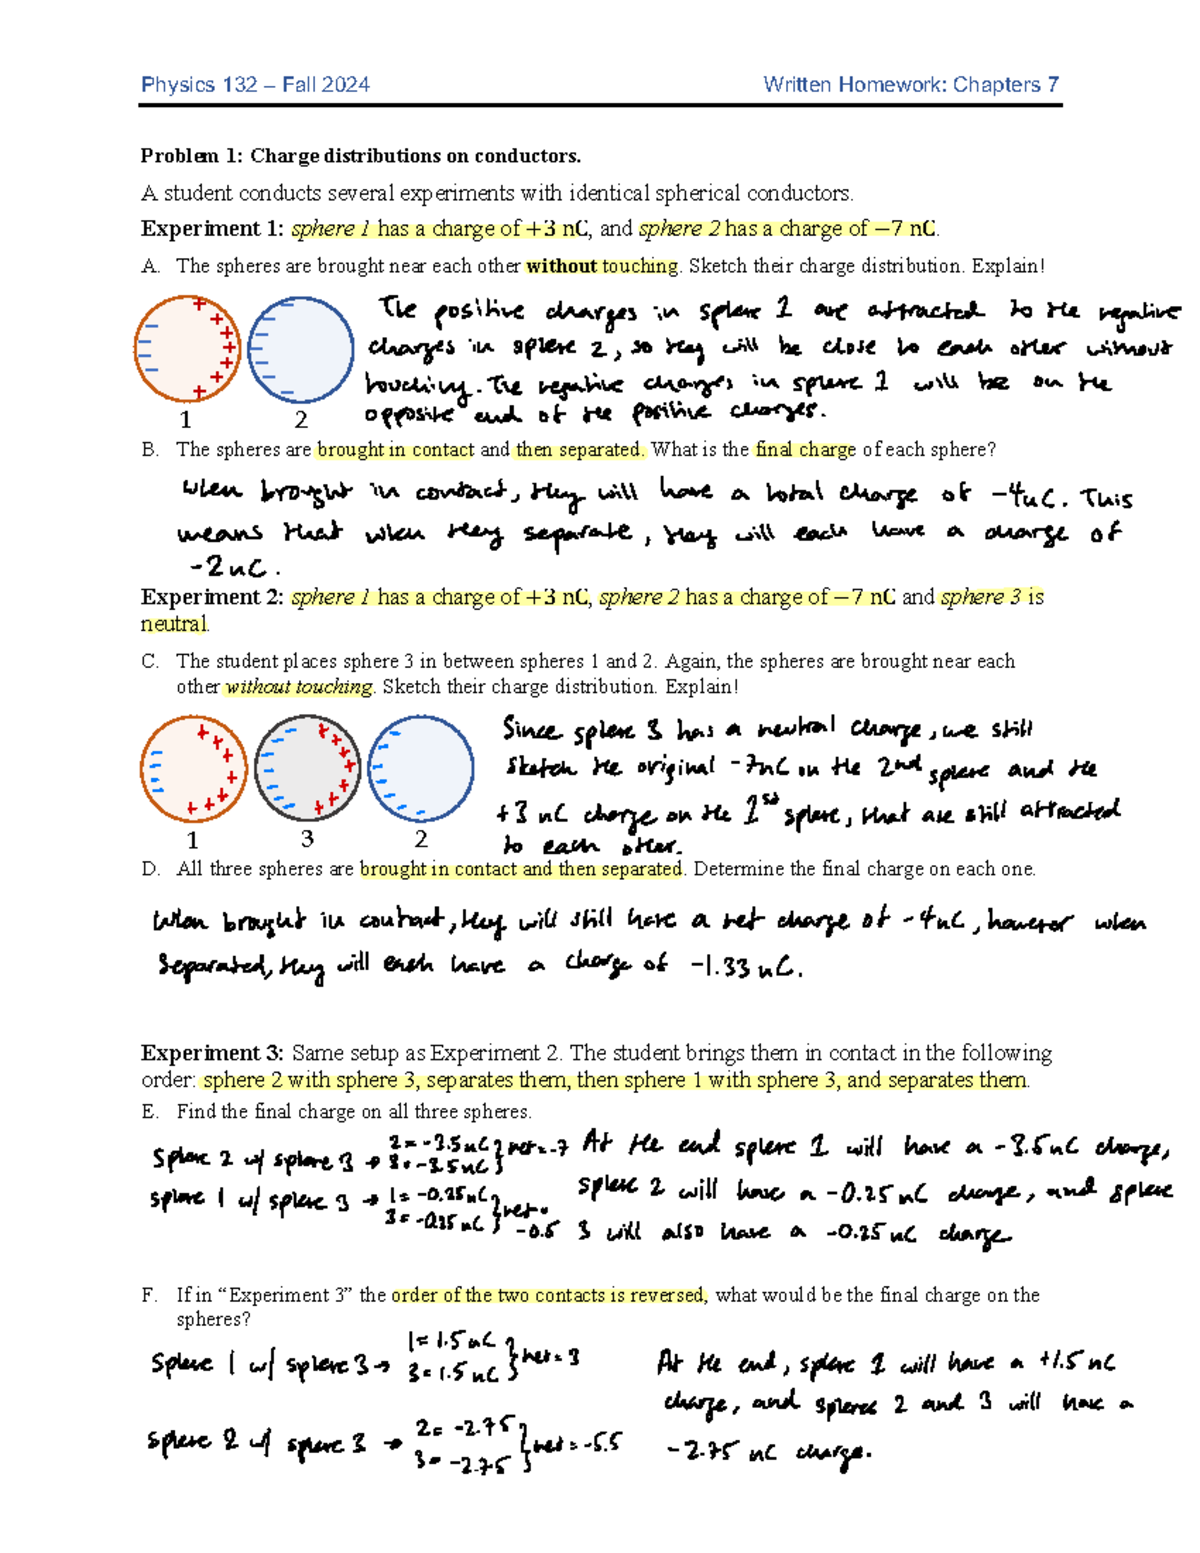 Physics 132 – Fall 2024 Written Homework: Chapters 7
Problem 1: Charge distributions on conductors.
A student conducts several experiments with identical spherical conductors.
Experiment 1: sphere 1 has a charge of +3 nC, and sphere 2 has a charge of −7 nC.
A. The spheres are brought near each other without touching. Sketch their charge distribution. Explain!
The positive charges in sphere 1 are attracted to the negative
charges in sphere 2, so they will be close to each other without
touching. The negative charges in sphere 1 will be on the
opposite end of the positive charges.
1 2
B. The spheres are brought in contact and then separated. What is the final charge of each sphere?
When brought in contact, they will have a total charge of -4nC. This
means that when they separate, they will each have a charge of
-2nC.
Experiment 2: sphere 1 has a charge of +3 nC, sphere 2 has a charge of −7 nC and sphere 3 is
neutral.
C. The student places sphere 3 in between spheres 1 and 2. Again, the spheres are brought near each
other without touching. Sketch their charge distribution. Explain!
Since sphere 3 has a neutral charge, we still
sketch the original -7nC on the 2nd sphere and the
+3 nC charge on the 1st sphere, that are still attracted
to each other.
1 3 2
D. All three spheres are brought in contact and then separated. Determine the final charge on each one.
When brought in contact, they will still have a net charge of -4nC, however when
separated, they will each have a charge of -1.33 nC.
Experiment 3: Same setup as Experiment 2. The student brings them in contact in the following
order: sphere 2 with sphere 3, separates them, then sphere 1 with sphere 3, and separates them.
E. Find the final charge on all three spheres.
Sphere 2 w/ sphere 3 → 2 = -3.5nC 3 = -3.5nC } net = -7
sphere 1 w/ sphere 3 → 1 = -0.25nC 3 = -0.25 nC } net = -0.5
At the end sphere 1 will have a -3.5nC charge,
sphere 2 will have a -0.25 nC charge, and sphere
3 will also have a -0.25 nC charge
F. If in “Experiment 3” the order of the two contacts is reversed, what would be the final charge on the
spheres?
Sphere 1 w/ sphere 3 → 1 = 1.5 nC 3 = 1.5 nC } net = 3
sphere 2 w/ sphere 3 → 2 = -2.75 3 = -2.75 } net = -5.5
At the end, sphere 1 will have a +1.5 nC
charge, and spheres 2 and 3 will have a
-2.75 nC charge.